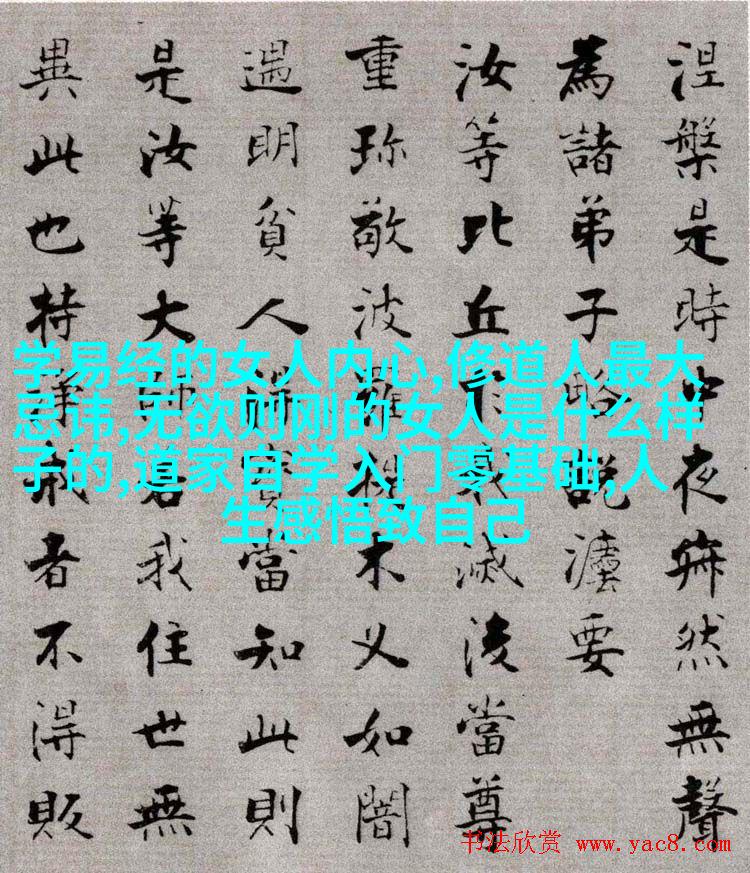 涅槃是時中夜寂然無聲
為諸弟子略說灋要
汝等比丘於我滅後當尊
重珎敬波羅提木叉如闇
遇明貧人得寶當知此則
是汝等大師若我住世無
異此也持淨戒者不得販
学易经的女人内心,修道人最大
忌讳,无欲则刚的女人是什么样
子的,道家自学入门零基础,人
生感悟致自己
书法欣赏 www.yac8.com